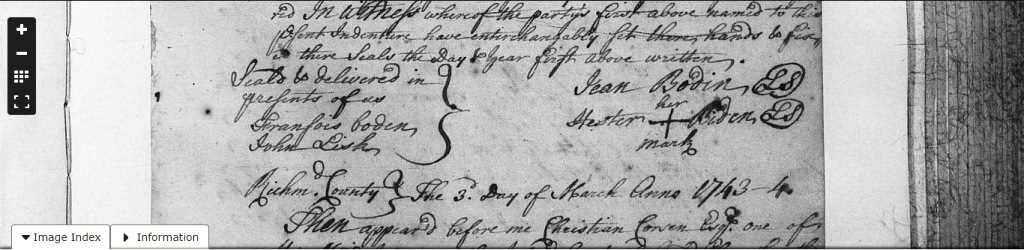 red In witness whereof the partys first above named to this
p'sent Indenture have enterchangably set there hands & fixe
d there Seals the Day & year first above written.
Seald & delivered in
presents of us
Jean Bodin LS
her
Hester + Boden LS
mark
Franfois boden
John Lisk
Richm.d County The 3.d Day of March Anno 1743-4.
Then appear'd before me Christian Corsen Esq.r one of
Image Index
Information